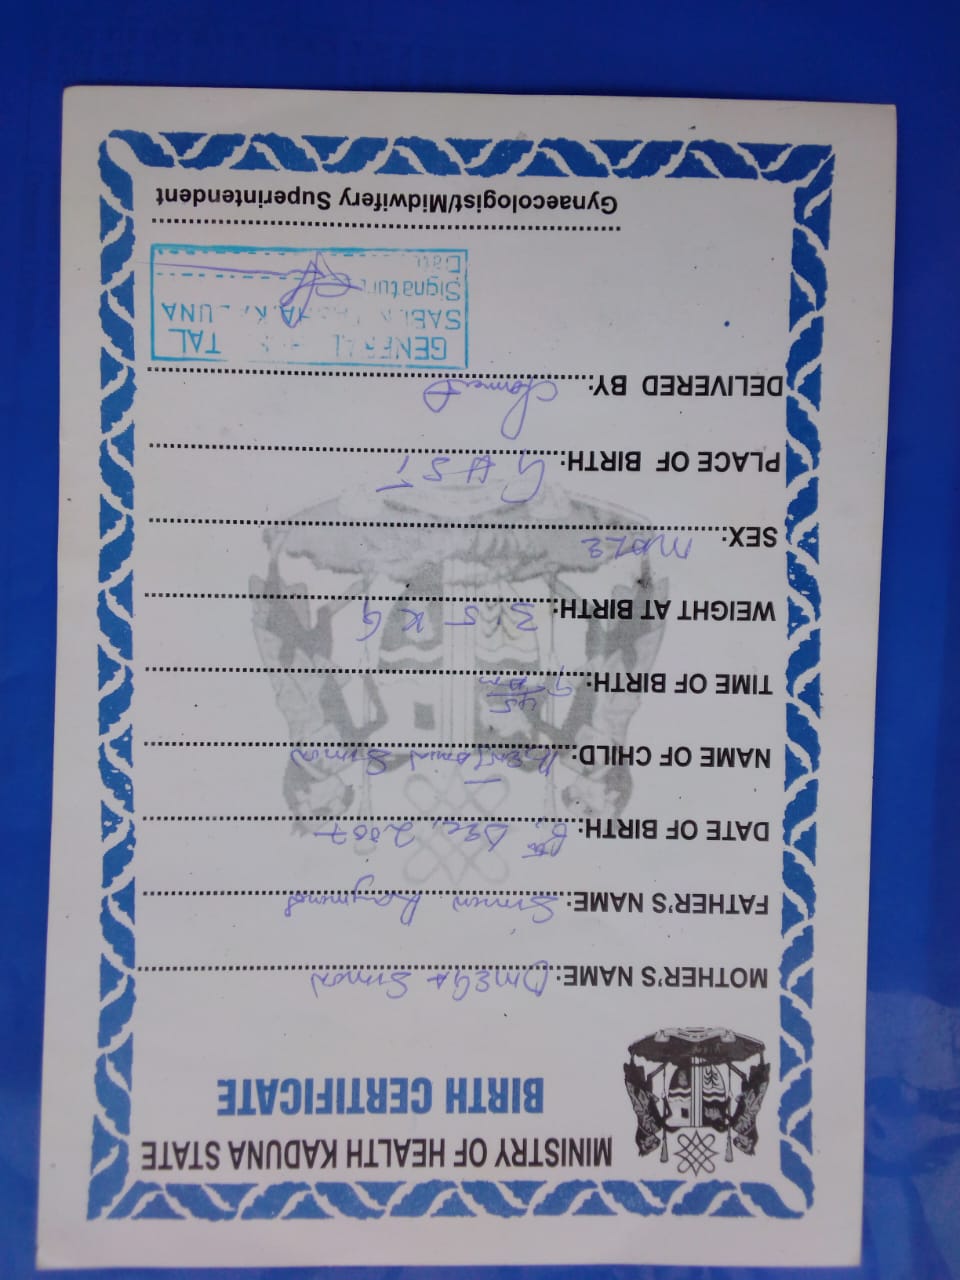 MINISTRY OF HEALTH KADUNA STATE
BIRTH CERTIFICATE
MOTHER'S NAME: OMEGA SIMON
FATHER'S NAME: Simon Raymond
DATE OF BIRTH: 8th DEC, 2007
NAME OF CHILD: Simon
TIME OF BIRTH: 9 45
WEIGHT AT BIRTH: 3.5 KG
SEX: MALE
PLACE OF BIRTH:
DELIVERED BY:
GENERAL TAL
SABON KADUNA
Signature
Date
Gynaecologist/Midwifery Superintendent